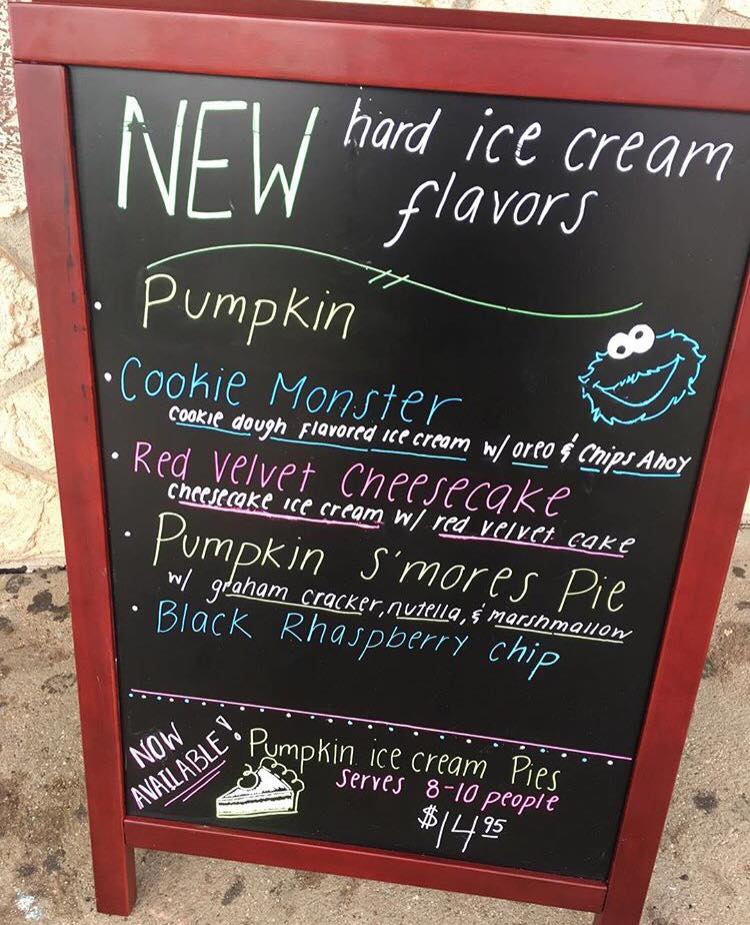 NEW hard ice cream
flavors
· Pumpkin
· Cookie Monster
cookie dough flavored ice cream w/ oreo & Chips Ahoy
· Red Velvet Cheesecake
cheesecake ice cream w/ red velvet cake
· Pumpkin S'mores Pie
w/ graham cracker, nutella, & marshmallow
· Black Rhaspberry chip
NOW
AVAILABLE!
Pumpkin ice cream Pies
serves 8-10 people
$14.95